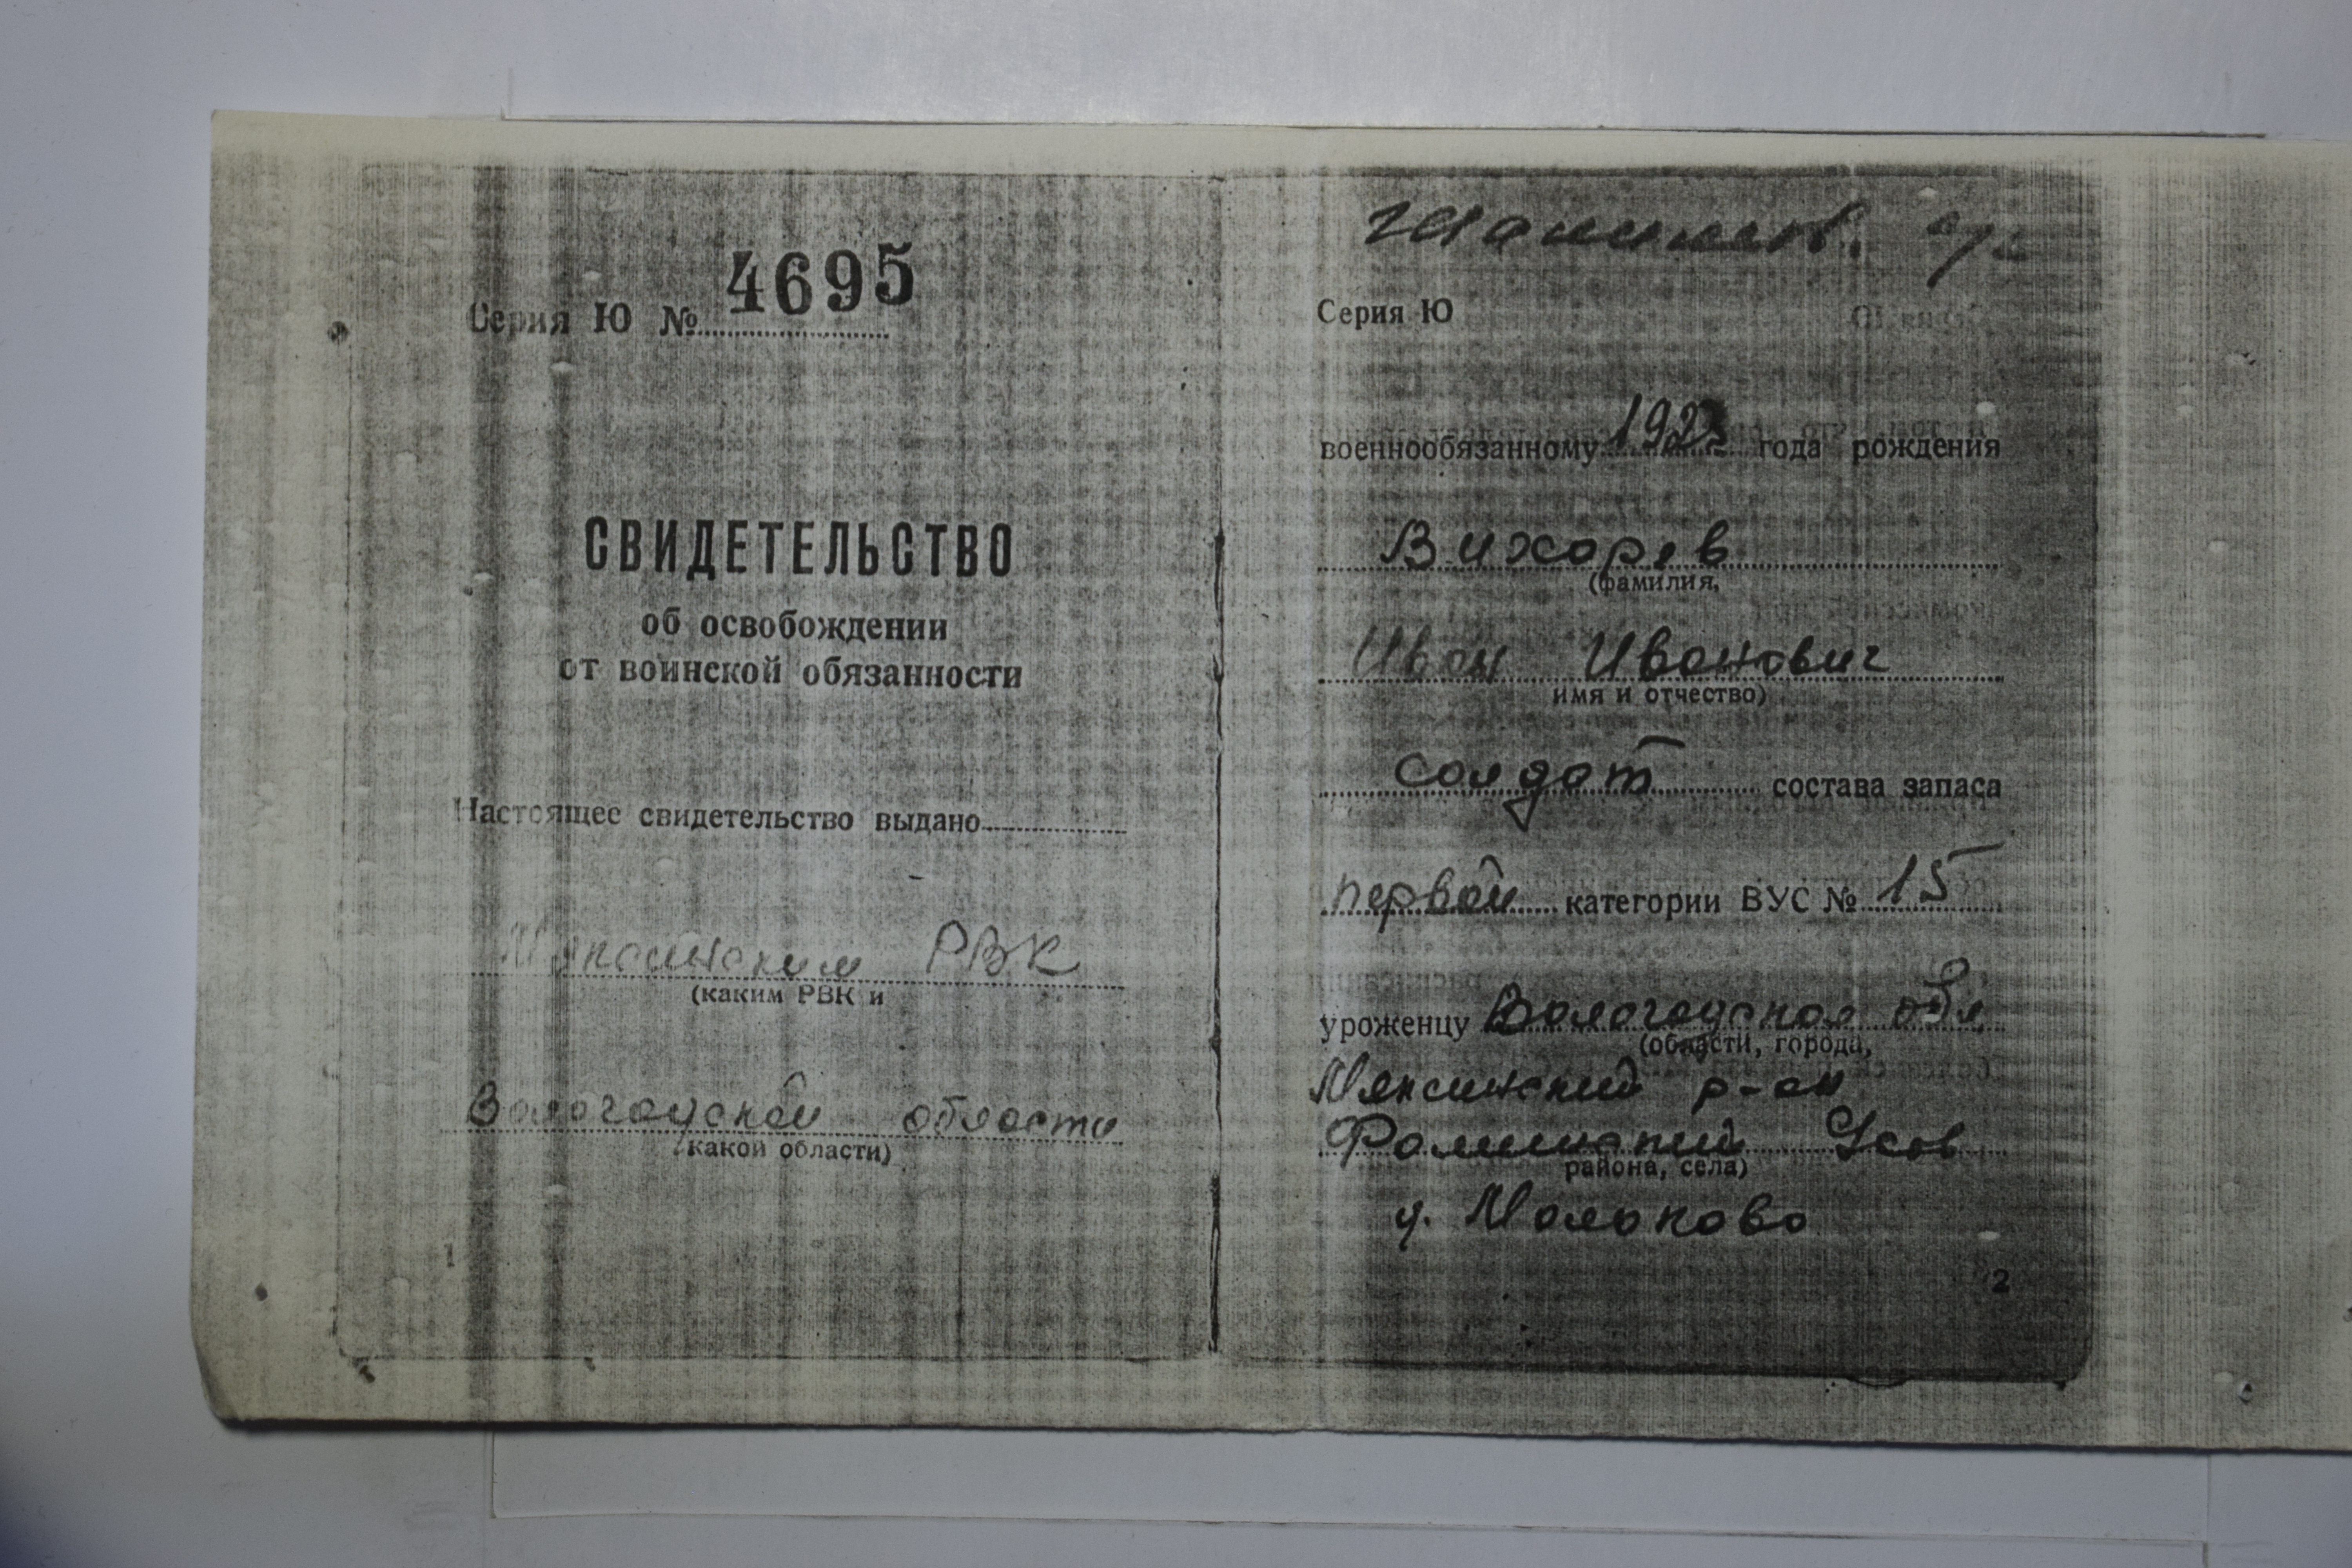 Серия Ю № 4695
СВИДЕТЕЛЬСТВО
об освобождении
от воинской обязанности
Настоящее свидетельство выдано
Мяксинским РВК
(каким РВК и
Вологодской области
какой области)
1
Серия Ю
военнообязанному года рождения
Вихарев
(фамилия,
Иван Иванович
имя и отчество)
солдат состава запаса
первой категории ВУС № 15
уроженцу Вологодская обл
(области, города,
Мяксинский р-он
района, села)
д. Мальково
2